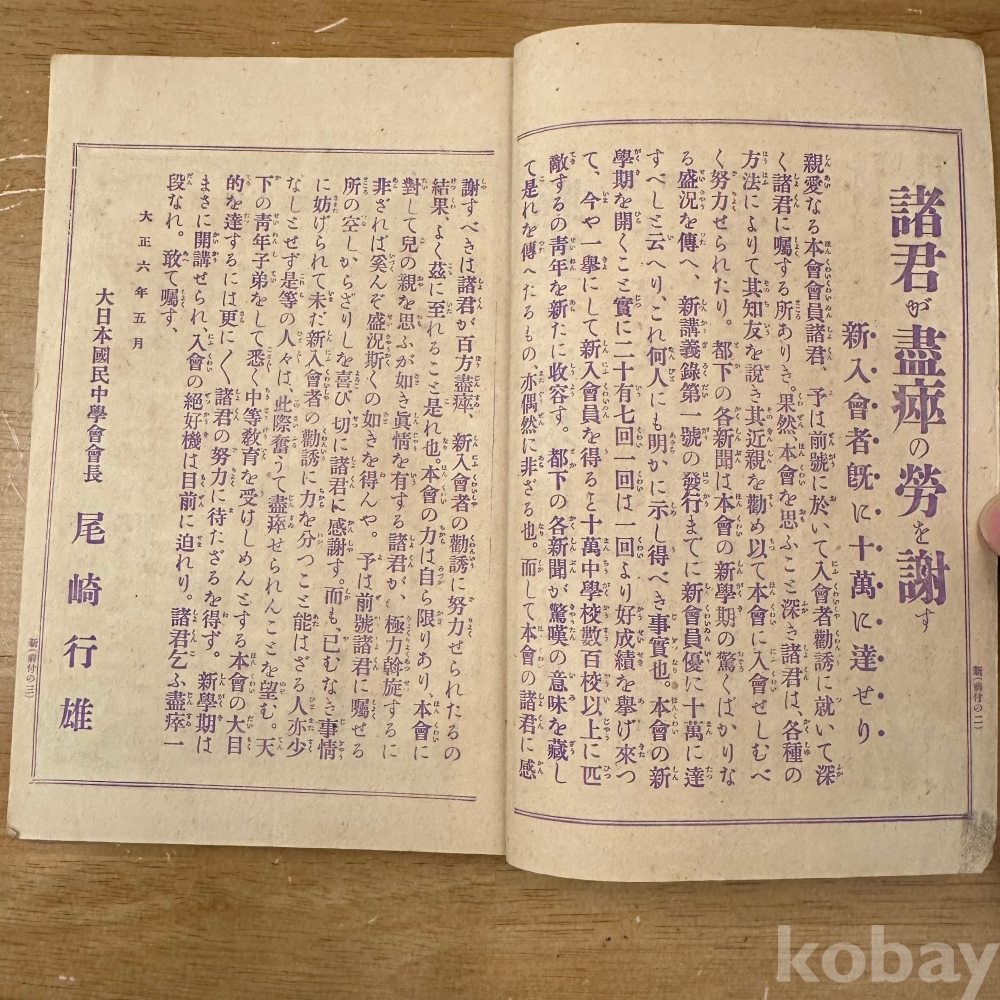 諸君が盡瘁の勞を謝す
新入會者既に十萬に達せり
親愛なる本會會員諸君、予は前號に於いて入會者勸誘に就いて深
く諸君に囑する所ありき。果然、本會を思ふこと深き諸君は、各種の
方法によりて其知友を說き其近親を勸め以て本會に入會せしむべ
く努力せられたり。都下の各新聞は本會の新學期の驚くばかりな
る盛況を傳へ、新講義錄第一號の發行までに新會員優に十萬に達
すべしと云へり、これ何人にも明かに示し得べき事實也。本會の新
學期を開くこと實に二十有七回一回は一回より好成績を擧げ來つ
て、今や一擧にして新入會員を得ると十萬中學校數百校以上に匹
敵するの靑年を新たに收容す。都下の各新聞が驚嘆の意味を藏し
て是れを傳へたるもの、亦偶然に非ざる也。而して本會の諸君に感
謝すべきは諸君が百方盡瘁、新入會者の勸誘に努力せられたるの
結果、よく茲に至れること是れ也。本會の力は自ら限りあり、本會に
對して兒の親を思ふが如き眞情を有する諸君が、極力斡旋するに
非ざれば奚んぞ盛況斯くの如きを得んや。予は前號諸君に囑せる
所の空しからざりしを喜び切に諸君に感謝す。而も、已むなき事情
に妨げられて未だ新入會者の勸誘に力を分つこと能はざる人亦少
なしとせず是等の人々は、此際奮うて盡瘁せられんことを望む。天
下の靑年子弟をして悉く中等敎育を受けしめんとする本會の大目
的を達するには更に〱諸君の努力に待たざるを得ず。新學期は
まさに開講せられ、入會の絕好機は目前に迫れり。諸君乞ふ盡瘁一
段なれ。敢て囑す、
大正六年五月
大日本國民中學會會長 尾崎行雄
新(前付の二)
新(前付の三)
kobay